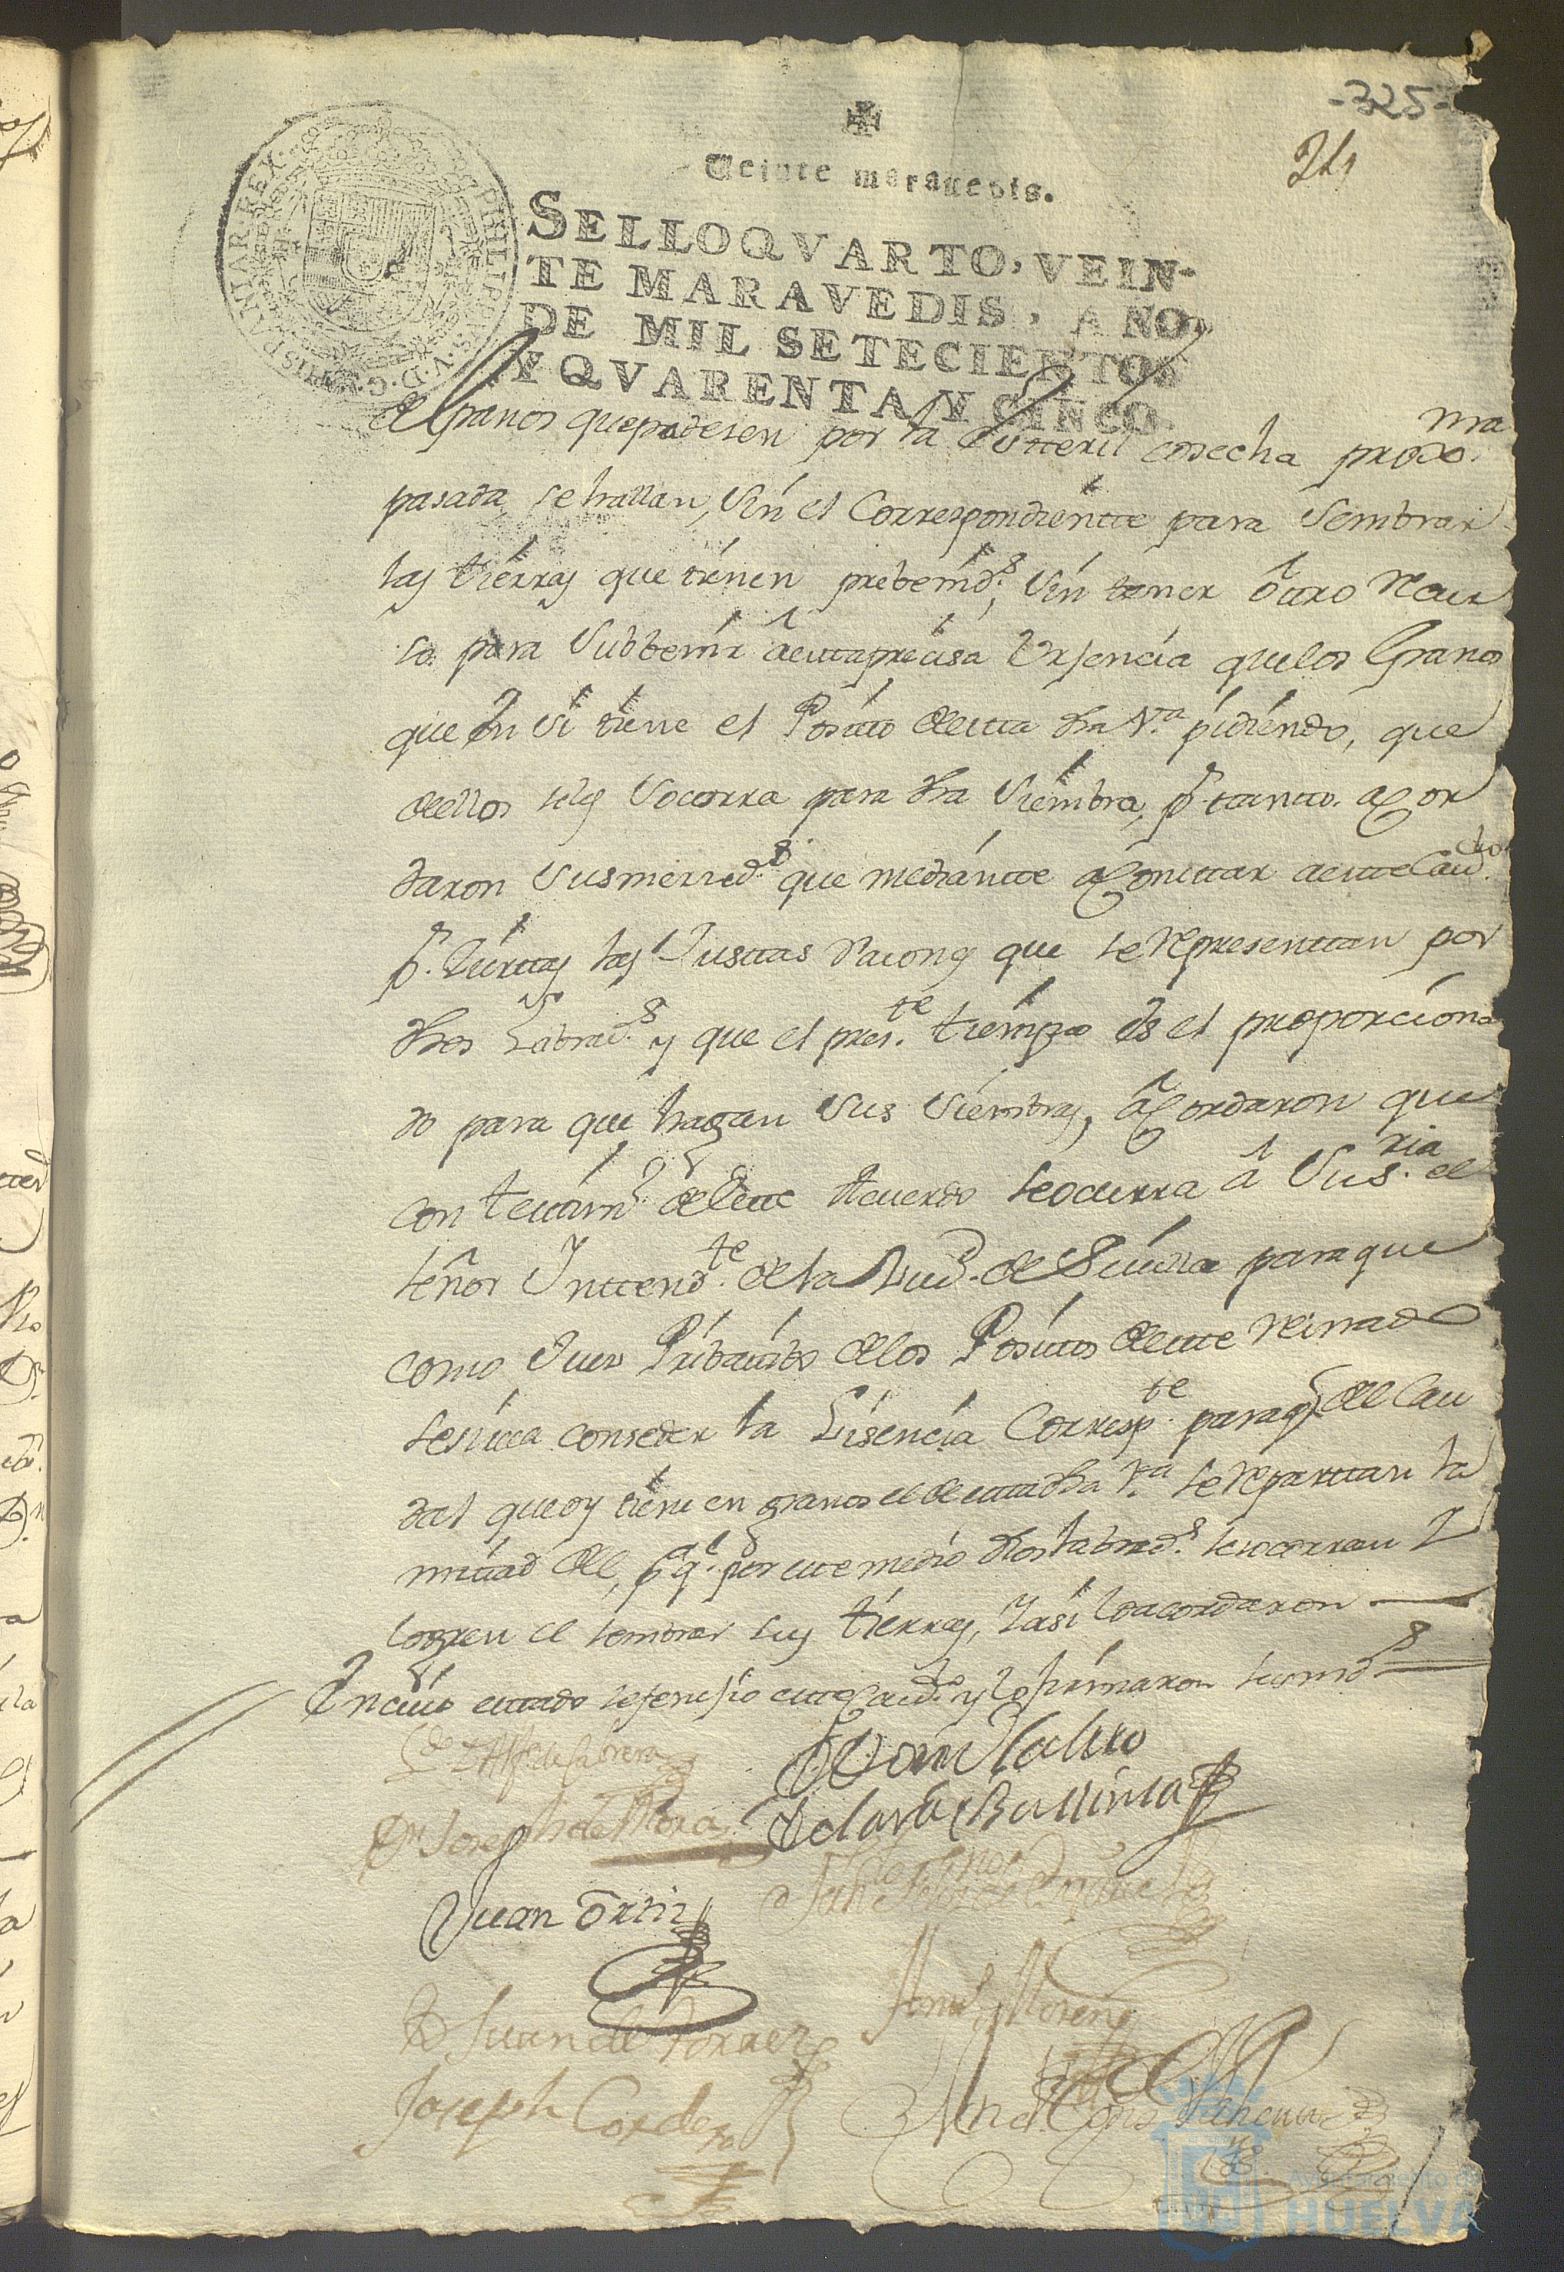 -325-
24
Veinte maravedis.
SELLO QVARTO, VEIN-
TE MARAVEDIS, AÑO
DE MIL SETECIENTOS
Y QVARENTA Y CINCO.
PHILIPPUS V D G HISPANIAR REX
de Granos que padesen por la Estteril cosecha proxma
pasada, se hallan, sin el Correspondientte para sembrar
las tierras que tienen prebenids, sin tener ôtro recur
so para subbenir â esta presisa Urjencia que los Granos
que en si tiene el Positto de esta dha Va. pidiendo, que
de ellos se les socorra para dha siembra, pr. tantto. acor
daron sus merceds. que mediantte a Constar a este Cavdo.
pr. siertas las Justtas rasones que se representtan por
dhos Labrads. y que el preste. tiempo es el proporciona
do para que hagan sus siembras, acordaron que
con testimo. de este Acuerdo se ocurra â su sria. el
señor Inttendte. de la Ciud. de Sevilla para que
como Jues Pribatibo de los Posittos de este reinado
se sirva conseder la Lisencia Correspte. para q del Cau
dal que oy tiene en granos el de esta dha Va. se reparttan la
mitad del, pa. q. por este medio dhos labrads. se socorran y
logren el sembrar sus tierras, y asi lo acordaron
En cuio estado se fenesio este Cavdo. y lo firmaron sus mds.
Dn. Joseph de Mora
Juan Ortiz
D Juan de Torres
Moreno
Joseph Cordero
Ayuntamiento de
HUELVA